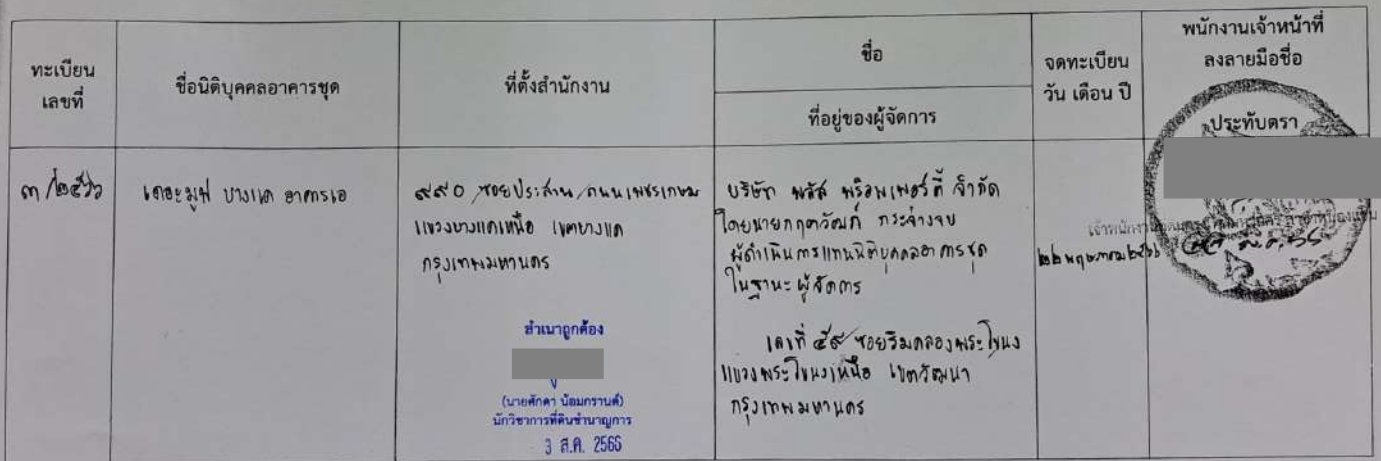 ทะเบียน
เลขที่
ชื่อนิติบุคคลอาคารชุด
ที่ตั้งสำนักงาน
ชื่อ
ที่อยู่ของผู้จัดการ
จดทะเบียน
วัน เดือน ปี
พนักงานเจ้าหน้าที่
ลงลายมือชื่อ
ประทับตรา
๓/๒๕๖๖
เดอะมูฟ บางแค อาคารเอ
๙๙๐ ซอยประสาน ถนนเพชรเกษม
แขวงบางแคเหนือ เขตบางแค
กรุงเทพมหานคร
สำเนาถูกต้อง
(นายศักดา น้อมกรานต์)
นักวิชาการที่ดินชำนาญการ
3 ส.ค. 2566
บริษัท พลัส พร็อพเพอร์ตี้ จำกัด
โดยนายกฤตวัฒก์ กระจ่างจบ
ผู้ดำเนินการแทนนิติบุคคลอาคารชุด
ในฐานะผู้จัดการ
เลขที่ ๕๙ ซอยริมคลองพระโขนง
แขวงพระโขนงเหนือ เขตวัฒนา
กรุงเทพมหานคร
๒๒ พฤษภาคม ๒๕๖๖